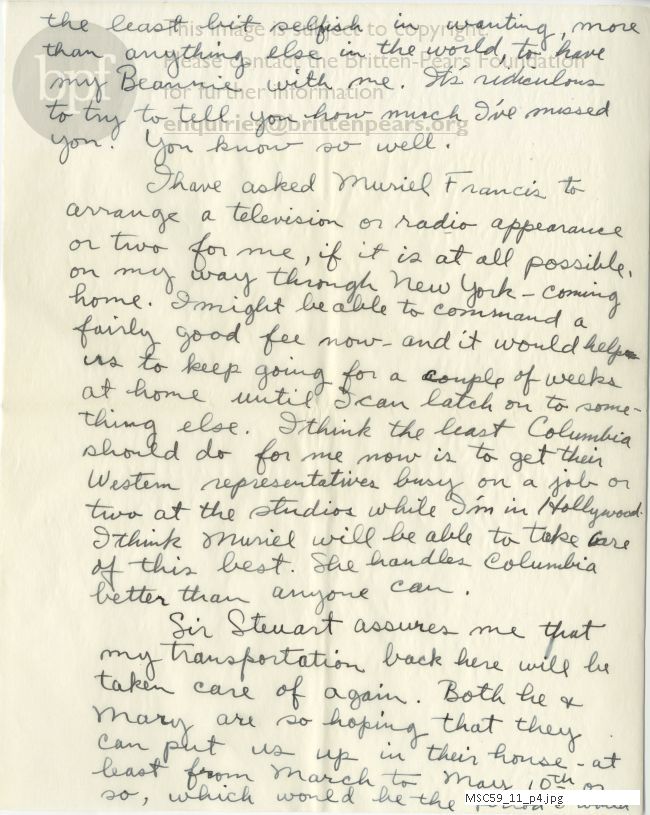 the least bit selfish in wanting, more
than anything else in the world, to have
my Beannie with me. It's ridiculous
to try to tell you how much I've missed
you! You know so well.
I have asked Muriel Francis to
arrange a television or radio appearance
or two for me, if it is at all possible,
on my way through New York - coming
home. I might be able to command a
fairly good fee now - and it would help
us to keep going for a couple of weeks
at home until I can latch on to some-
thing else. I think the least Columbia
should do for me now is to get their
Western representatives busy on a job or
two at the studios while I'm in Hollywood.
I think Muriel will be able to take care
of this best. She handles Columbia
better than anyone can.
Sir Steuart assures me that
my transportation back here will be
taken care of again. Both he &
Mary are so hoping that they
can put us up in their house - at
least from March to May 10th or
so, which would be the
bpf
This image is subject to copyright.
Please contact the Britten-Pears Foundation
for further information
enquiries@brittenpears.org
MSC59_11_p4.jpg